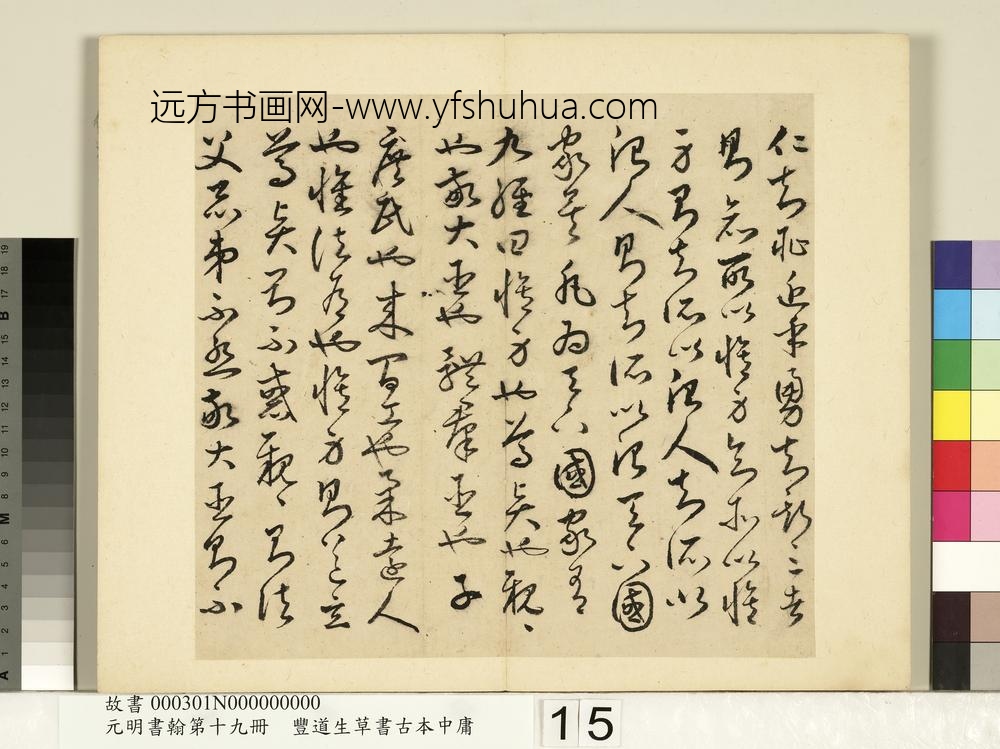 远方书画网-www.yfshuhua.com
仁知恥近乎勇知斯三者
則知所以脩身知所以脩
身則知所以治人知所以
治人則知所以治天下國
家矣凡為天下國家有
九經曰脩身也尊賢也親〻
也敬大臣也體羣臣也子
庶民也來百工也柔遠人
也懷諸侯也脩身則道立
尊賢則不惑親〻則諸
父昆弟不怨敬大臣則不
故書 000301N000000000
元明書翰第十九冊 豐道生草書古本中庸
15